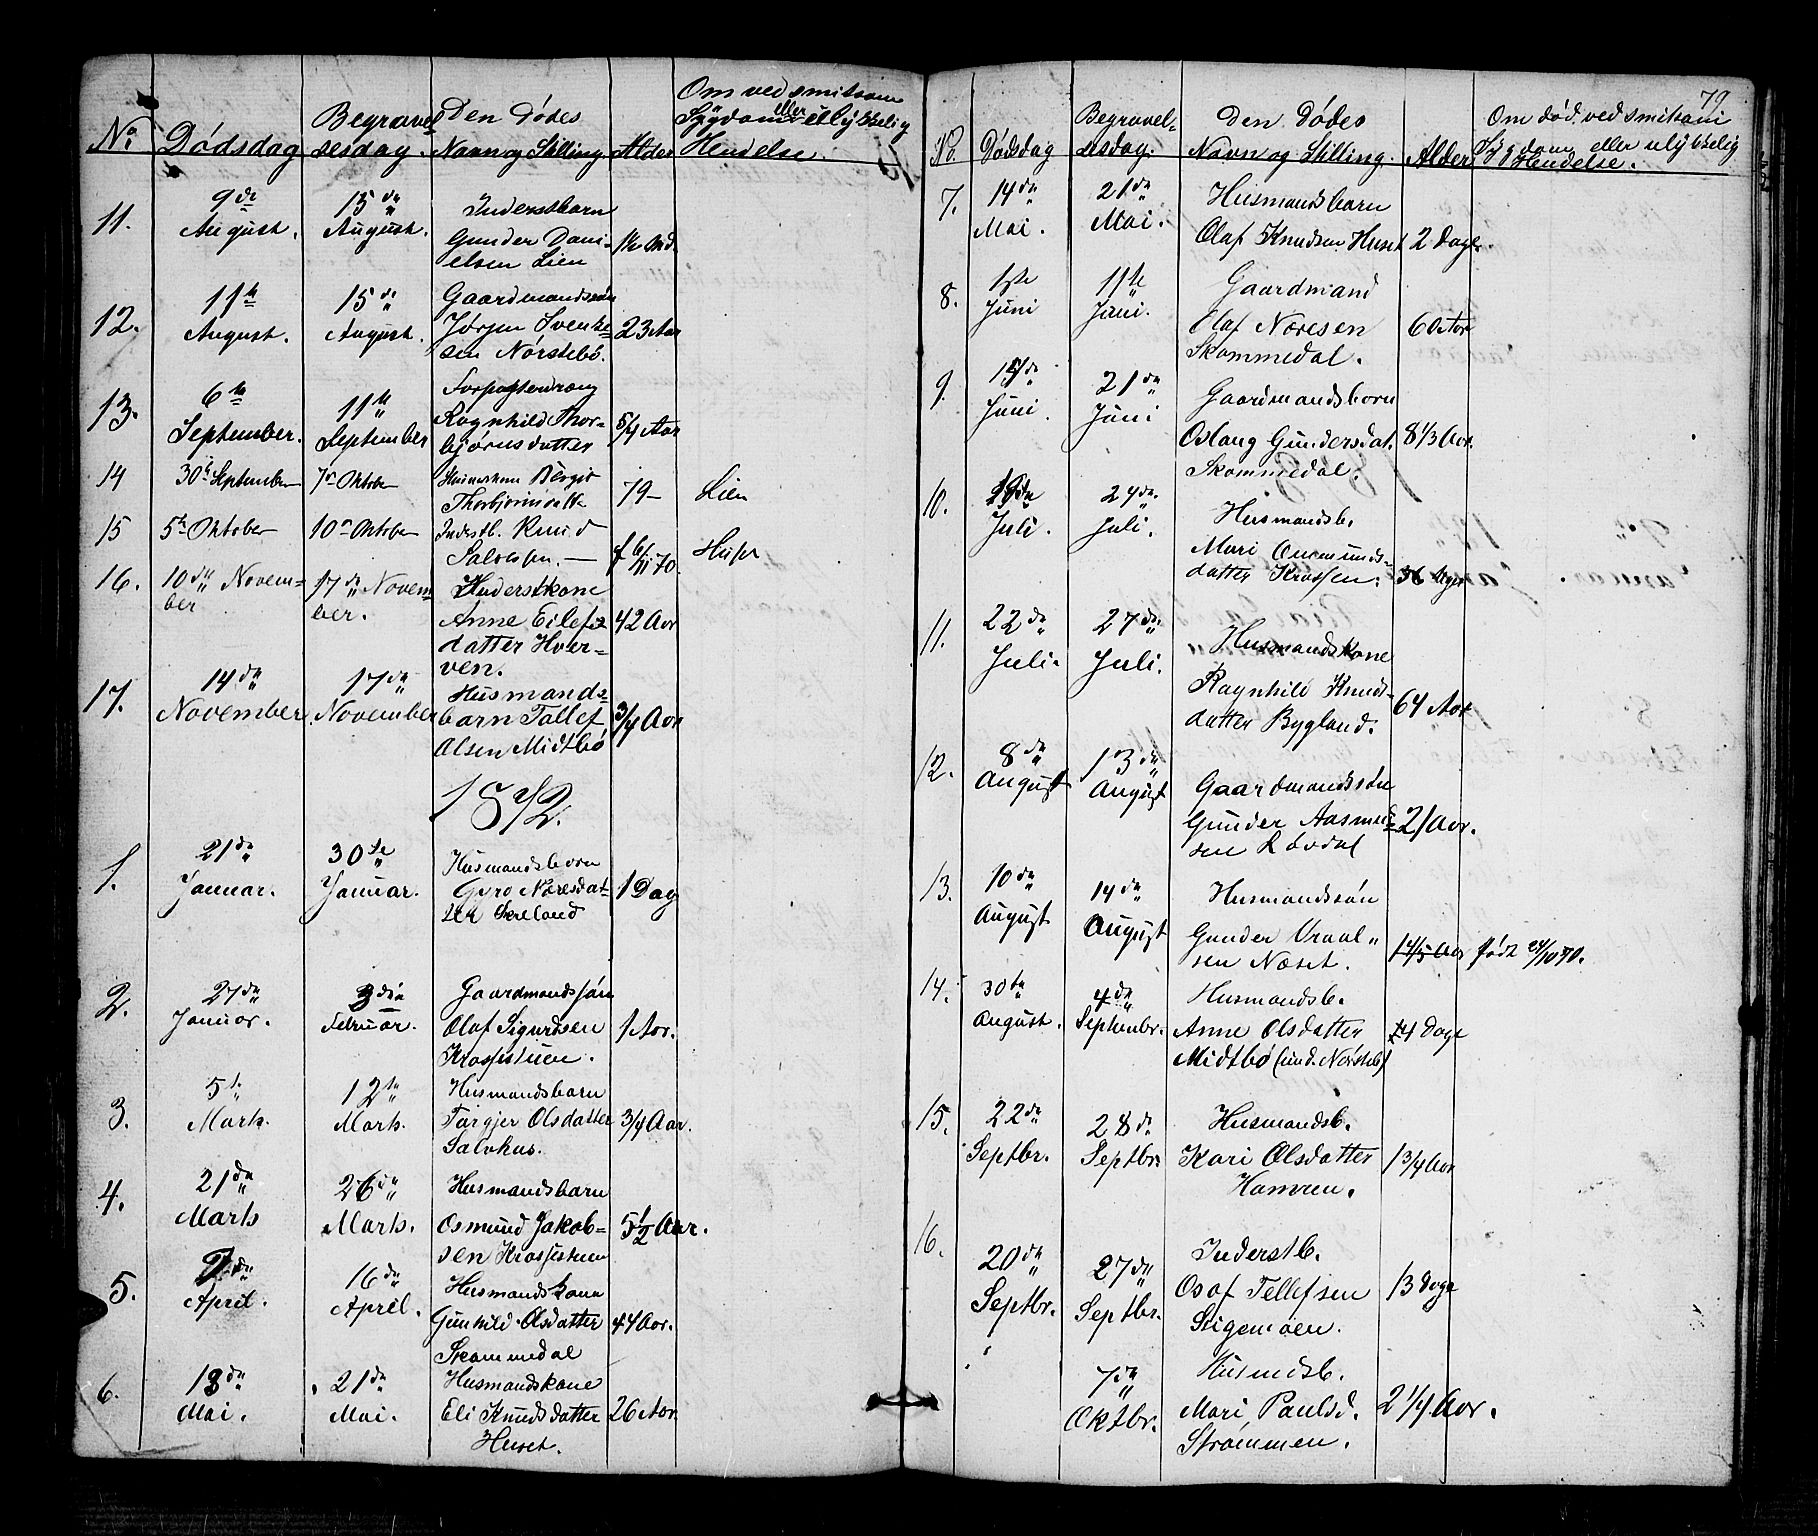 No. Dødsdag Begravelsesdag. Den Dødes Navn og Stilling. Alder Om ved smitsom Sygdom eller ulykkelig Hendelse.
11. 9de August. 15de August. Inderstbarn
Gunder Dani-
elsen Lien
12. 11te August. 15de August. Gaardmandssøn
Jørgen Svenke-
sen Nørstebø. 23 Aar
13. 6te September. 11te September
Ragnhild Thor-
bjørnsdatter 5/4 Aar
14 30te September 7de Oktober Birgit
Thorbjørnsdatter 79 — Lien
15 5te Oktober 10de Oktober Inderstb. Knud
Salvesen. — f 6/11 70. Huset
16. 10de November 17de November. Inderstkone
Anne Eilefs-
datter Hver-
ven. 42 Aar
17. 14de November 17de November Husmands-
barn Tallef
Olsen Midtbø 3/4 Aar
1872.
1. 21de Januar. 30te Januar. Husmandsbarn
Gyro Næresdat-
ter Skreland 1 Dag
2. 27de Januar. 3die Februar. Gaardmandssøn
Olaf Sigurdsen
Krossistuen. 1 Aar.
3. 5te Marts. 12te Marts. Husmandsbarn
Targjer Olsdatter
Salvhus. 3/4 Aar.
4. 21de Marts 26de Marts. Husmandsbarn
Osmund Jakob-
sen Krossistuen 5 1/2 Aar.
5. April. 16de April. Husmandskone
Gunhild Olsdatter
Skammedal 44 Aar.
6. 13de Mai. 21de Mai. Husmandskone
Eli Knudsdatter
Huset. 26 Aar.
79.
No. Dødsdag Begravelsesdag. Den Dødes Navn og Stilling. Alder Om død ved smitsom Sygdom eller ulykkelig Hendelse.
7. 14de Mai. 21de Mai. Husmandsbarn
Olaf Knudsen Huset 2 Dage.
8. 1ste Juni 11te Juni. Gaardmand
Olaf Næresen
Skammedal. 60 Aar
9. 15de Juni. 21de Juni Gaardmandsbarn
Oslaug Gundersdat.
Skammedal. 8 1/3 Aar.
10. Juli. 24de Juli. Husmandsb.
Mari Aumunds-
datter Krossen. Uger
11. 22de Juli. 27de Juli. Husmandskone
Ragnhild Knuds-
datter Bygland. 64 Aar
12. 8de August 13de August Gaardmandssøn
Gunder Aasmund-
sen Løvdal 21 Aar.
13. 10de August 14de August Husmandssøn
Gunder Vraal-
sen Næset. 1 4/5 Aar født 24/10 70.
14. 30te August. 4de Septembr. Husmandsb.
Anne Olsdatter
Midtbø (und. Nørstebø) 14 Dage
15. 22de Septbr. 28de Septbr. Husmandsb.
Kari Olsdatter
Hamren. 1 3/4 Aar
16. 20de Septbr. 27de Septbr. Inderstb.
Osof Tellefsen
Stigemoen. 13 Dage
7de Oktbr. Husmdsb.
Mari Paulsd.
Strømmen. 2 1/4 Aar.